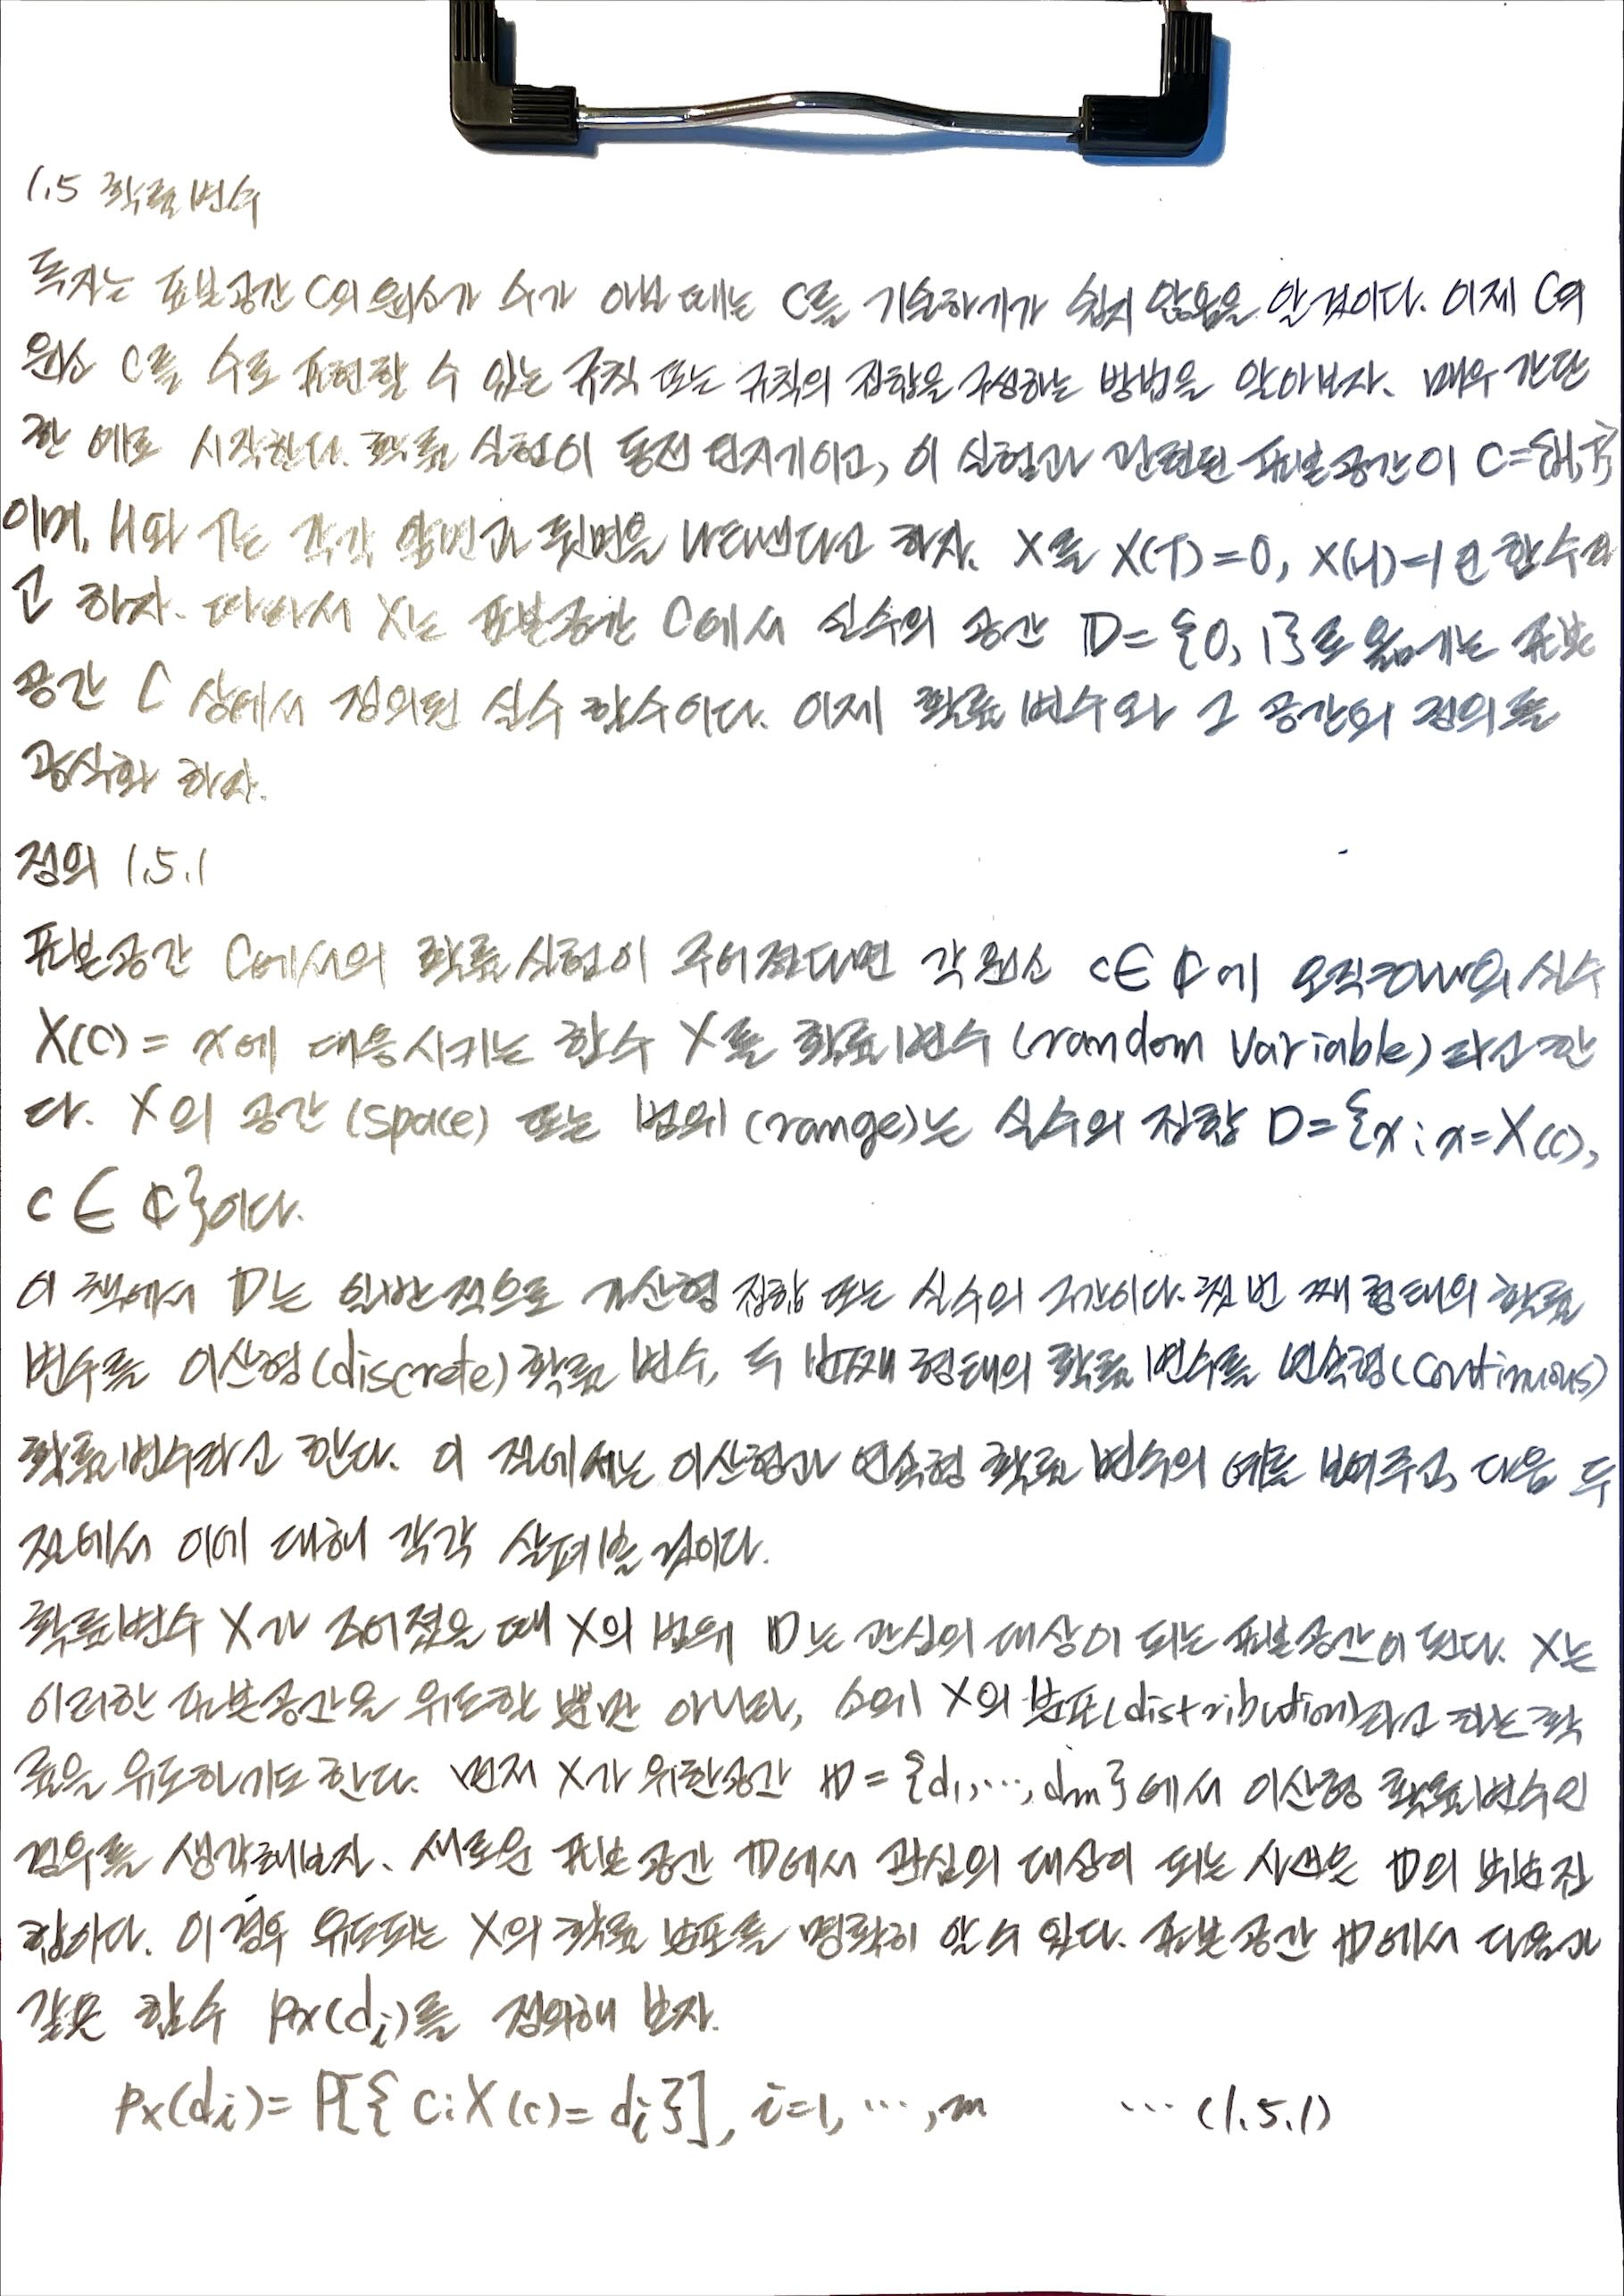 1.5 확률변수
독자는 표본공간 C의 원소가 수가 아닐 때는 C를 기술하기가 쉽지 않음을 알 것이다. 이제 C의
원소 C를 수로 표현할 수 있는 규칙 또는 규칙의 집합을 구성하는 방법을 알아보자. 매우 간단
한 예로 시작한다. 확률 실험이 동전 던지기이고, 이 실험과 관련된 표본공간이 C={H,T}
이며, H와 T는 각각 앞면과 뒷면을 나타낸다고 하자. X를 X(T)=0, X(H)=1인 함수라
고 하자. 따라서 X는 표본공간 C에서 실수의 공간 D={0, 1}로 옮기는 표본
공간 C 상에서 정의된 실수 함수이다. 이제 확률 변수와 그 공간의 정의를
공식화 하자.
정의 1.5.1
표본공간 C에서의 확률실험이 주어졌다면 각 원소 c∈ℂ에 오직 하나의 실수
X(c)=x에 대응시키는 함수 X를 확률변수(random variable)라고 한
다. X의 공간(space) 또는 범위(range)는 실수의 집합 D={x:x=X(c),
c∈ℂ}이다.
이 책에서 D는 일반적으로 가산형 집합 또는 실수의 구간이다. 첫 번 째 형태의 확률
변수를 이산형(discrete) 확률 변수, 두 번째 형태의 확률 변수를 연속형(continuous)
확률변수라고 한다. 이 절에서는 이산형과 연속형 확률 변수의 예를 보여주고, 다음 두
절에서 이에 대해 각각 살펴볼 것이다.
확률변수 X가 주어졌을 때 X의 범위 D는 관심의 대상이 되는 표본공간이 된다. X는
이러한 표본공간을 유도할 뿐만 아니라, 소위 X의 분포(distribution)라고 하는 확
률을 유도하기도 한다. 먼저 X가 유한공간 D={d₁,⋯,dₘ}에서 이산형 확률변수인
경우를 생각해보자. 새로운 표본 공간 D에서 관심의 대상이 되는 사건은 D의 부분집
합이다. 이 경우 유도되는 X의 확률 분포를 명확히 알 수 있다. 표본 공간 D에서 다음과
같은 함수 pₓ(dᵢ)를 정의해 보자.
pₓ(dᵢ)=P[{c:X(c)=dᵢ}], i=1,⋯,m ⋯(1.5.1)